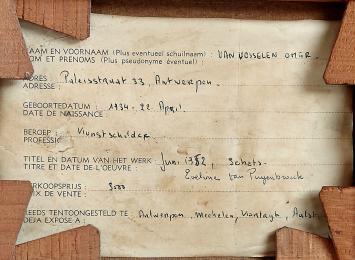 NAAM EN VOORNAAM (Plus eventueel schuilnaam) : VAN VOSSELEN OMER.
NOM ET PRENOMS (Plus pseudonyme éventuel) :
ADRES : Paleisstraat 33, Antwerpen.
ADRESSE :
GEBOORTEDATUM : 1934 - 22 April.
DATE DE NAISSANCE :
BEROEP : Kunstschilder
PROFESSIE
TITEL EN DATUM VAN HET WERK : Juni 1982, Schets-
TITRE ET DATE DE L'OEUVRE : Eveline Van Puyenbroeck
VERKOOPSPRIJS : 3000
PRIX DE VENTE :
REEDS TENTOONGESTELD TE : Antwerpen, Mechelen,
DEJA EXPOSE A :